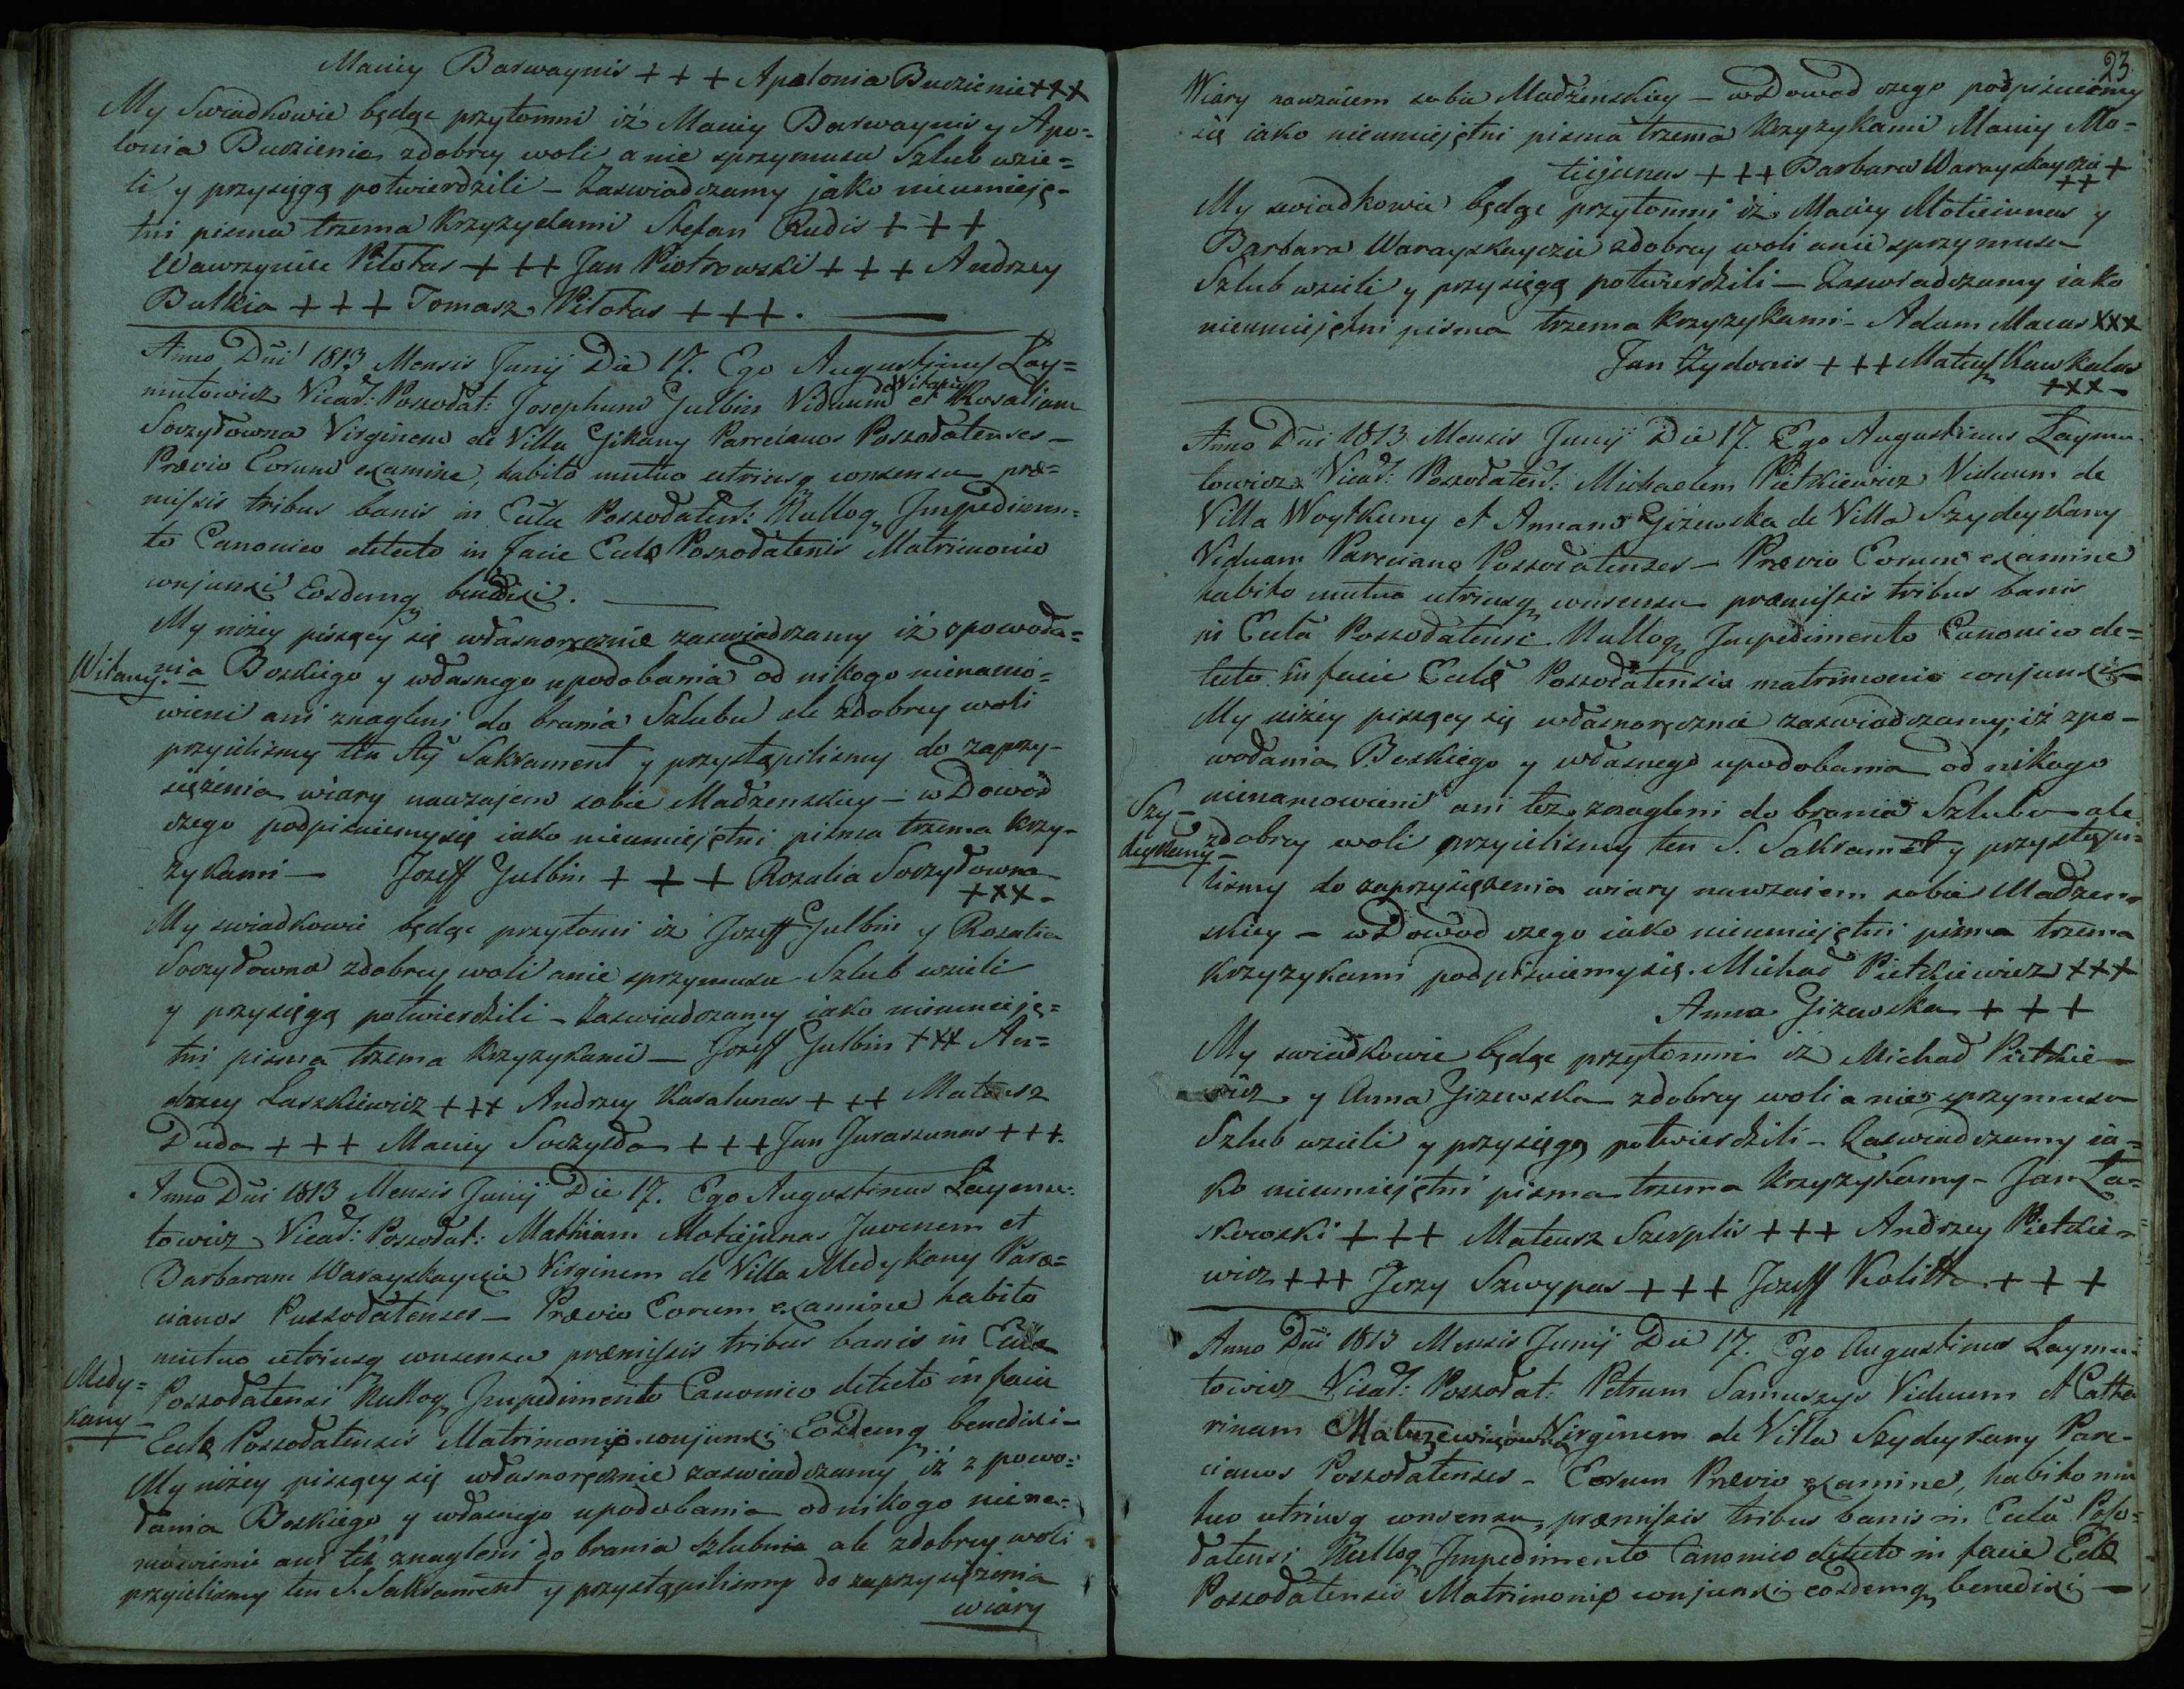 Maciey Barwaynis +++ Apolonia Budzienie +++
My Swiadkowie będąc przytomni iż Maciey Barwaynis y Apo=
lonia Budzienie zdobrey woli a nie zprzymusu Szlub wzie=
li y przysięgą potwierdzili – Zaswiadczamy jako nieumieję-
tni pisma trzema Krzyzykami Stefan Rudis +++
Wawrzyniec Pilotas +++ Jan Piotrowski +++ Andrzey
Butkia +++ Tomasz Pilotas +++.
Anno Dni 1813 Mensis Junij Die 17. Ego Augustinus Lay=
mutowicz Vicar: Poszodat: Josephum Gulbin Viduum de Witany et Rosaliam
Soczyłowna Virginem de Villa Gikany Parcianos Poszodatenses –
Prævio Eorum examine, habito mutuo utriusq consensu præ=
missis tribus banis in Ecła Poszodatens: Nulloq Impedimen=
to Canonico detecto in Facie Eclæ Poszodatensis Matrimonio
conjunxi Eosdemq benedixi.
My niżey piszący się własnoręcznie zaswiadczamy iż zpowoda=
Witany. nia Boskiego y własnego upodobania od nikogo nienamo=
wieni ani znagleni do brania Szlubu ale zdobrey woli
przyieliśmy ten Sty Sakrament y przystąpiliśmy do zaprzy-
siężenia wiary nawzajem sobie Madzenskiey – w Dowód
czego podpisuiemy się iako nieumiejętni pisma trzema krzy-
zykami – Jozeff Gulbin +++ Rozalia Soczyłowna
+++ –
My swiadkowie będąc przytomi iż Jozeff Gulbin y Rozalia
Soczyłowna zdobrey woli anie zprzymusu Szlub wzieli
y przysięgą potwierdzili – Zaswiadczamy iako nieumieję=
tni pisma trzema krzyzykami – Jozeff Gulbin +++ An=
drzey Laszkiewicz +++ Andrzey Karalunas +++ Mateusz
Duda +++ Maciey Soczyłda +++ Jan Juraszunas +++.
Anno Dni 1813 Mensis Junij Die 17. Ego Augustinus Laymu=
towicz Vicar: Poszodat: Mathiam Motiejunas Juvenem et
Barbaram Warayskaycie Virginem de Villa Medykany Parc=
cianos Poszodatenses – Prævio Eorum examine habito
mutuo utriusq consensu præmissis tribus banis in Ecła
Medy=
kany –
Poszodatensi Nulloq Impedimento Canonico detecto in facie
Eclæ Poszodatensis Matrimonio conjunxi Eosdemq benedixi –
My niżey piszący się własnoręcznie zaswiadczamy iż z powo=
dania Boskiego y własnego upodobania od nikogo niena=
mówieni ani też znagleni do brania szlubu ale zdobrey woli
przyieliśmy ten S. Sakrament y przystąpiliśmy do zaprzysiężenia
wiary
23.
Wiary nawzaiem sobie Madżenskiey – w Dowod czego podpisuiemy
się iako nieumiejętni pisma trzema Krzyzykami Maciey Mo=
tiejunas +++ Barbara Warayskaycia +
++
My swiadkowie będąc przytomni iż Maciey Moticiunas y
Barbara Warayskayczia zdobrey woli anie zprzymusu
Szlub wzieli y przysięgą potwierdzili – Zaswiadczamy iako
nieumiejętni pisma trzema krzyzykami – Adam Macas +++
Jan Zydonis +++ Mateusz Kawkalas
+++ –
Anno Dni 1813 Mensis Junij Die 17. Ego Augustinus Laymu-
towicz Vicar: Poszodatens: Michaelem Pietkiewicz Viduum de
Villa Woytkuny et Annam Giżewska de Villa Szydeykany
Viduam Parcianos Poszodatenses – Prævio Eorum examine
habito mutuo utriusq consensu præmissis tribus banis
in Ecła Poszodatensi Nulloq Impedimento Canonico de=
tecto in facie Eclæ Poszodatensis matrimonio conjunxi –
My niżey piszący się własnoręcznie zaswiadczamy, iż zpo-
wodania Boskiego y własnego upodobania od nikogo
nienamowieni ani też znagleni do brania Szlubu ale
Szy-
deykany –
zdobrey woli przyieliśmy ten S. Sakramęt y przystąpi=
liśmy do zaprzysiężenia wiary nawzaiem sobie Madżen-
skiey – w Dowod czego iako nieumiejętni pisma trzema
krzyzykami podpisuiemy się. Michał Pietkiewicz +++
Anna Giżewska +++
My swiadkowie będąc przytomni iż Michał Pietkie-
wicz y Anna Giżewska zdobrey woli a nie zprzymusu
Szlub wzieli y przysięgą potwierdzili – Zaswiadczamy ia=
ko nieumiejętni pisma trzema krzyzykamy – Jan La=
skowski +++ Mateusz Szerplis +++ Andrzey Pietkie=
wicz +++ Jerzy Szwypas +++ Jozeff Kolitta +++
Anno Dni 1813 Mensis Junij Die 17. Ego Augustinus Laymu=
towicz Vicar: Poszodat: Petrum Samuszys Viduum et Catha
rinam Matuzewiczówna Virginem de Villa Szydeykany Parc-
cianos Poszodatenses – Eorum Prævio examine, habito mu
tuo utriusq consensu, præmissis tribus banis in Ecła Poszo=
datensi Nulloq Impedimento Canonico detecto in facie Eclæ
Poszodatensis Matrimonio conjunxi eosdemq benedixi –